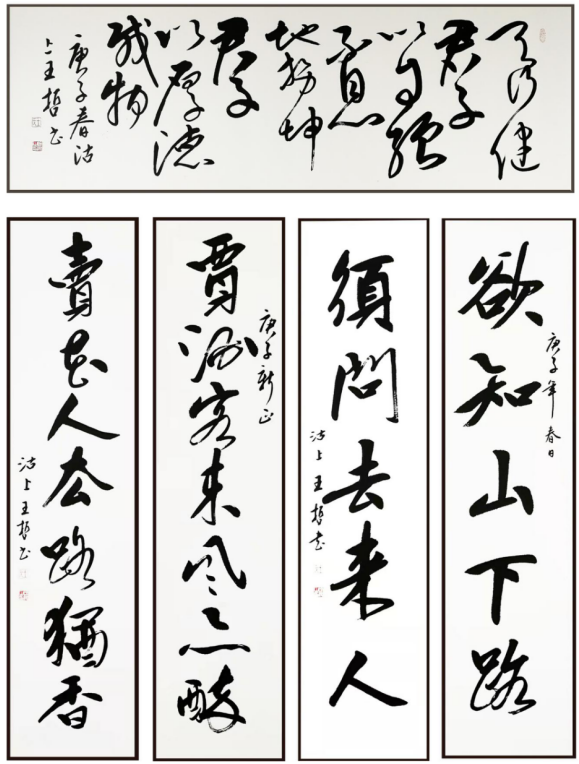 天行健
君子
以自强
不息
地势坤
君子
以厚德
载物
庚子春沽
上王哲书
欲知山下路
庚子年春日
須問去来人
沽上王哲书
賈酒客来风亦醉
庚子新正
賣花人去路猶香
沽上王哲书